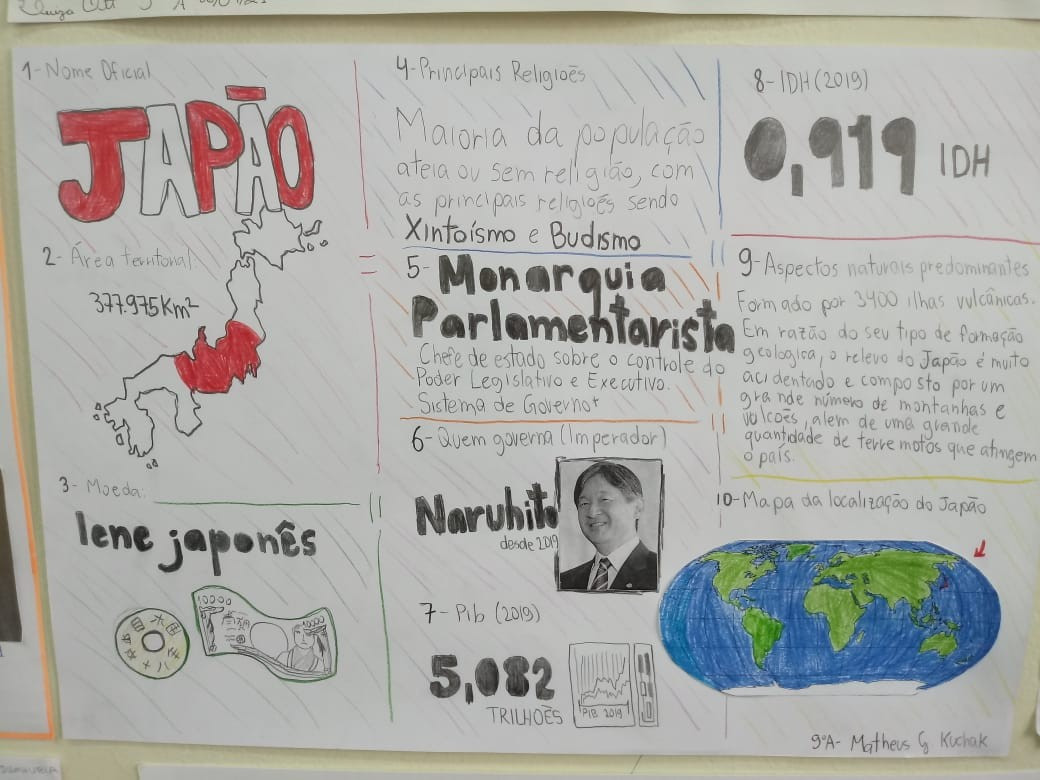 1- Nome Oficial
JAPÃO
2- Área territorial:
377.975Km²
3- Moeda:
Iene japonês
10000
4- Principais Religiões
Maioria da população
ateia ou sem religião, com
as principais religiões sendo
Xintoísmo e Budismo
5- Monarquia
Parlamentarista
Chefe de estado sobre o controle do
Poder Legislativo e Executivo.
Sistema de Governo↑
6- Quem governa (Imperador)
Naruhito
desde 2019
7- Pib (2019)
5,082
TRILHÕES
PIB 2019
8- IDH (2019)
0,919 IDH
9- Aspectos naturais predominantes
Formado por 3400 ilhas vulcânicas.
Em razão do seu tipo de formação
geologica, o relevo do Japão é muito
acidentado e composto por um
grande número de montanhas e
vulcões, alem de uma grande
quantidade de terremotos que atingem
o país.
10- Mapa da localização do Japão
9ºA- Matheus G. Kuchak